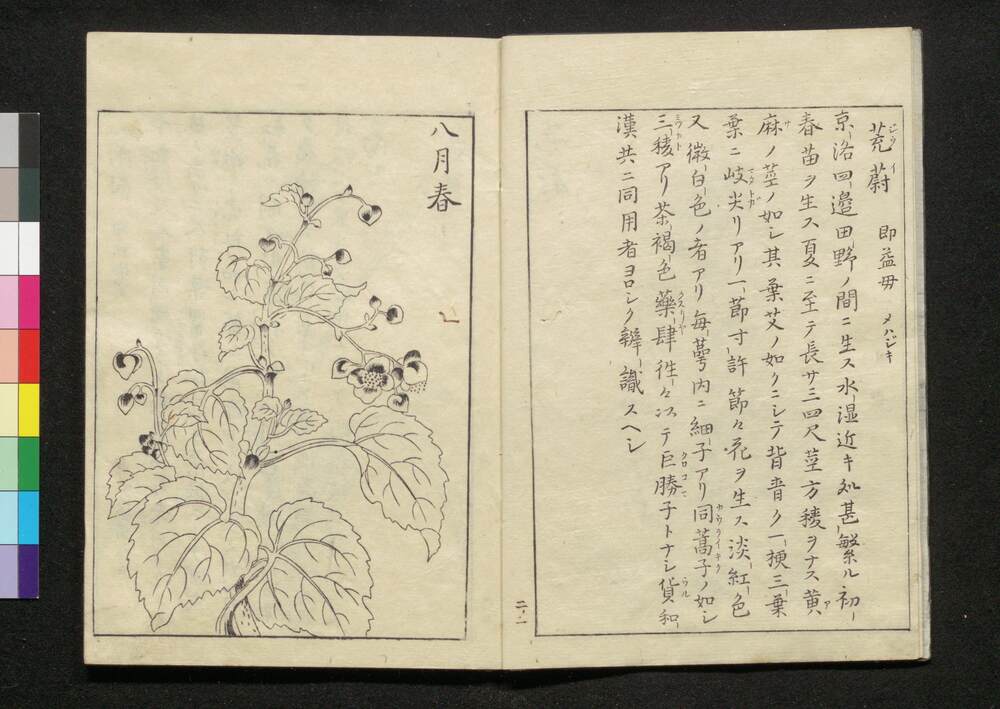 茺蔚 即益母 メハジキ
京洛四邉田野ノ間ニ生ス水湿近キ処甚繁ル初
春苗ヲ生ス夏ニ至テ長サ三四尺茎方稜ヲナス黄
麻ノ茎ノ如シ其葉艾ノ如クニシテ背青ク一梗三葉
葉ニ岐尖リアリ一節寸許節々花ヲ生ス淡紅色
又微白色ノ者アリ毎蕚内ニ細子アリ同蒿子ノ如シ
三稜アリ茶褐色藥肆徃々以テ巨勝子トナシ貨和
漢共ニ同用者ヨロシク辨識スヘシ
二ノ一
八月春